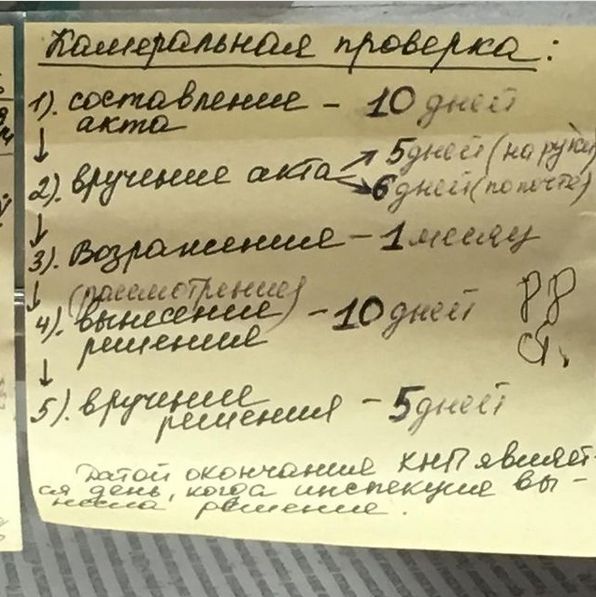 Камеральная проверка:
1). составление - 10 дней
акта
↓
2). вручение акта → 5 дней (на руки)
→ 6 дней (по почте)
↓
3). Возражения - 1 месяц
↓ (рассмотрение)
4). вынесение - 10 дней
решения
↓
5). вручение
решения - 5 дней
Датой окончания КНП являет-
ся день, когда инспекция вы-
несла решение.